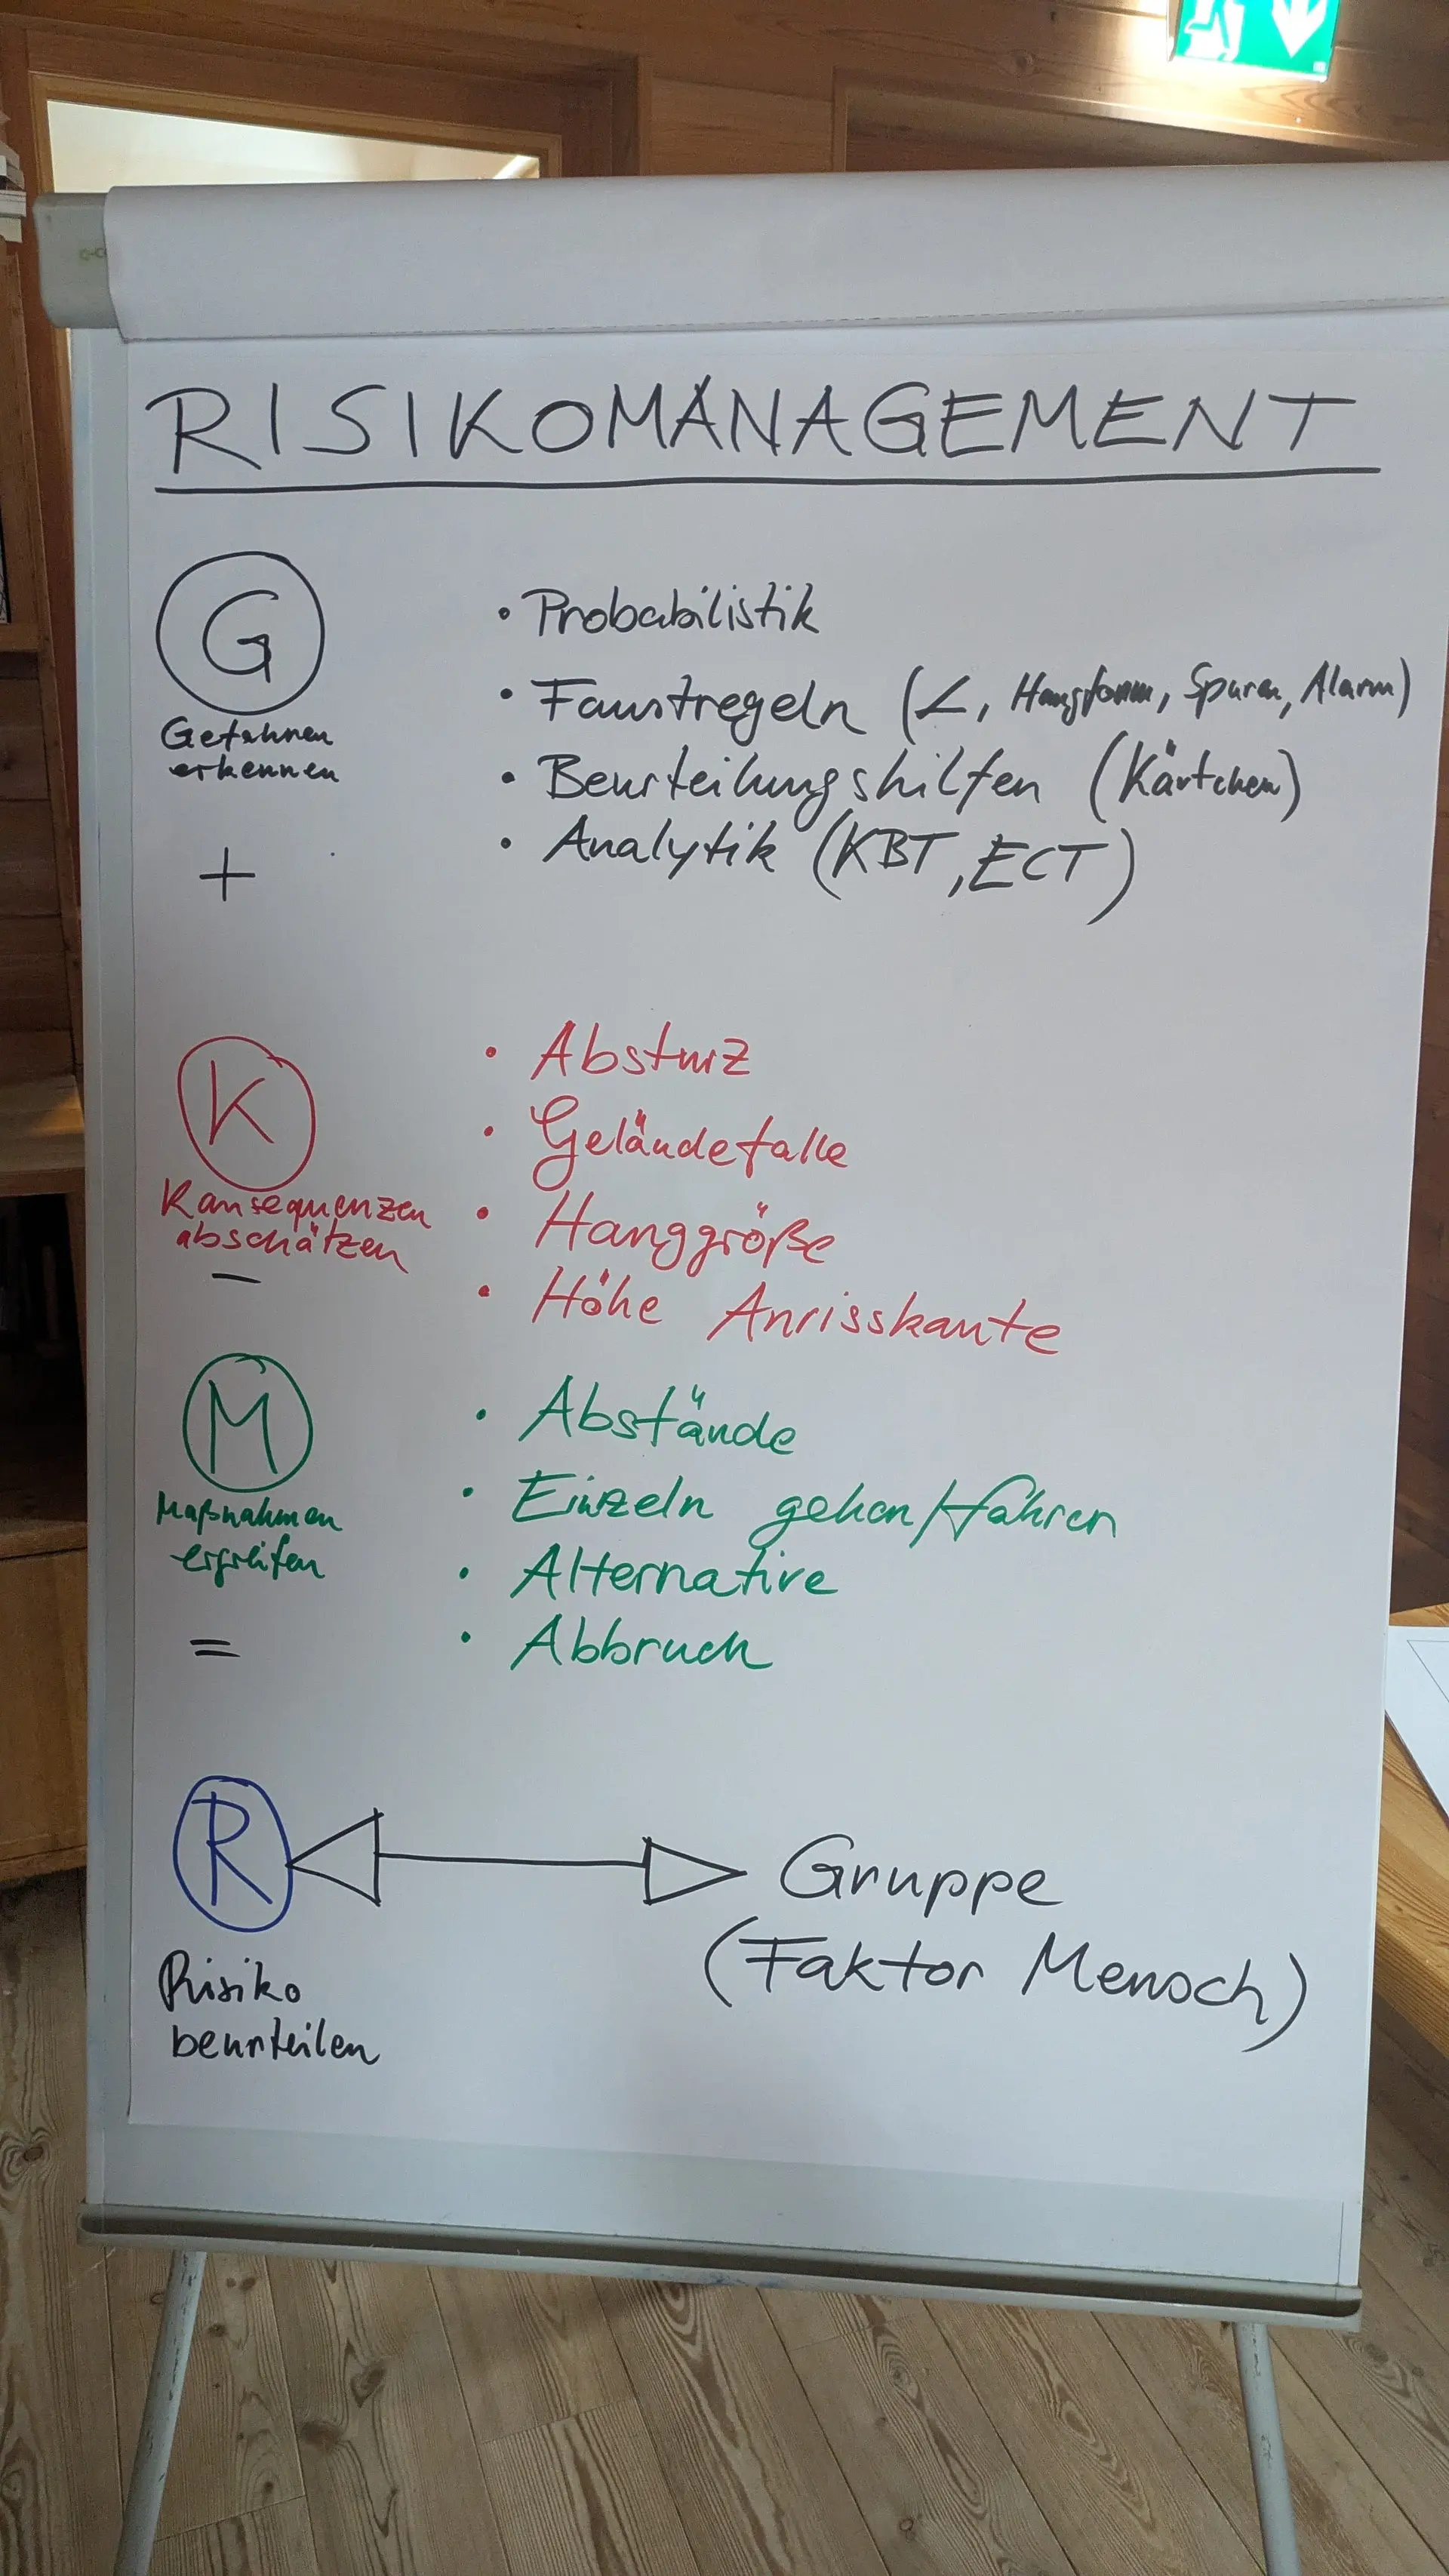 RISIKOMANAGEMENT
G
Gefahren
erkennen
• Probabilistik
• Faustregeln (∠, Hangform, Spuren, Alarm)
• Beurteilungshilfen (Kärtchen)
• Analytik (KBT, ECT)
+
K
Konsequenzen
abschätzen
• Absturz
• Geländefalle
• Hanggröße
• Höhe Anrisskante
–
M
Maßnahmen
ergreifen
• Abstände
• Einzeln gehen/fahren
• Alternative
• Abbruch
=
R
Risiko
beurteilen
Gruppe
(Faktor Mensch)